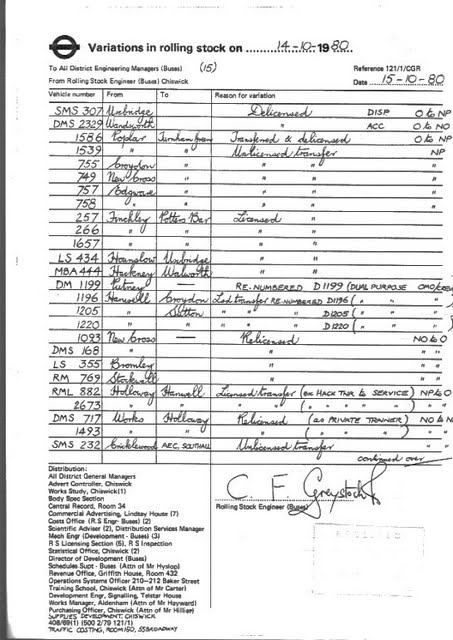 Variations in rolling stock on 14-10-1980
To All District Engineering Managers (Buses) (15) Reference 121/1/CGR
From Rolling Stock Engineer (Buses) Chiswick Date 15-10-80
Vehicle number From To Reason for variation
SMS 307 Uxbridge Delicensed DISP O to NP
DMS 2329 Wandsworth " ACC O to NO
1586 Poplar Turnham Green Transferred & delicensed O to NP
1539 " " Unlicensed transfer NP
755 Croydon " " " "
749 New Cross " " " "
757 Edgware " " " "
758 " " " " "
257 Finchley Potters Bar Licensed "
266 " " " "
1657 " " " "
LS 434 Hounslow Uxbridge " "
MBA 444 Hackney Walworth " "
DM 1199 Putney — RE-NUMBERED D 1199 (DUAL PURPOSE OMO/CREW
1196 Hanwell Croydon Lsd transfer RE-NUMBERED D1196 ( " " "
1205 " Sutton " " " D1205 ( " " "
1220 " " " " " D1220 ( " " "
1093 New Cross — Relicensed NO to O
DMS 168 " " "
LS 355 Bromley " " "
RM 769 Stockwell " " "
RML 882 Holloway Hanwell Licensed transfer (ex HACK TNR to SERVICE) NP to O
2673 " " " " ( " " " " ) " "
DMS 717 Works Holloway Relicensed (as PRIVATE TRAINER) NO to
1493 " " " ( " " " ) " "
SMS 232 Cricklewood AEC, SOUTHALL Unlicensed transfer
continued over
Distribution:
All District General Managers
Advert Controller, Chiswick
Works Study, Chiswick(1)
Body Spec Section
Central Record, Room 34
Commercial Advertising, Lindsay House (7)
Costs Office (R.S Engr- Buses) (2)
Scientific Adviser (2), Distribution Services Manager
Mech Engr (Development - Buses) (3)
R S Licensing Section (5), R S Inspection
Statistical Office, Chiswick (2)
Director of Development (Buses)
Schedules Supt - Buses (Attn of Mr Hyslop)
Revenue Office, Griffith House, Room 432
Operations Systems Officer 210-212 Baker Street
Training School, Chiswick (Attn of Mr Carter)
Development Engr, Signalling, Telstar House
Works Manager, Aldenham (Attn of Mr Hayward)
Purchasing Officer, Chiswick (Attn of Mr Hillier)
SUPPLIES DEVELOPMENT, CHISWICK
408/69(1) (500 2/79 121/1)
TRAFFIC COSTING, ROOM 150, 55 BROADWAY
C. F. Greystock
Rolling Stock Engineer (Buses)